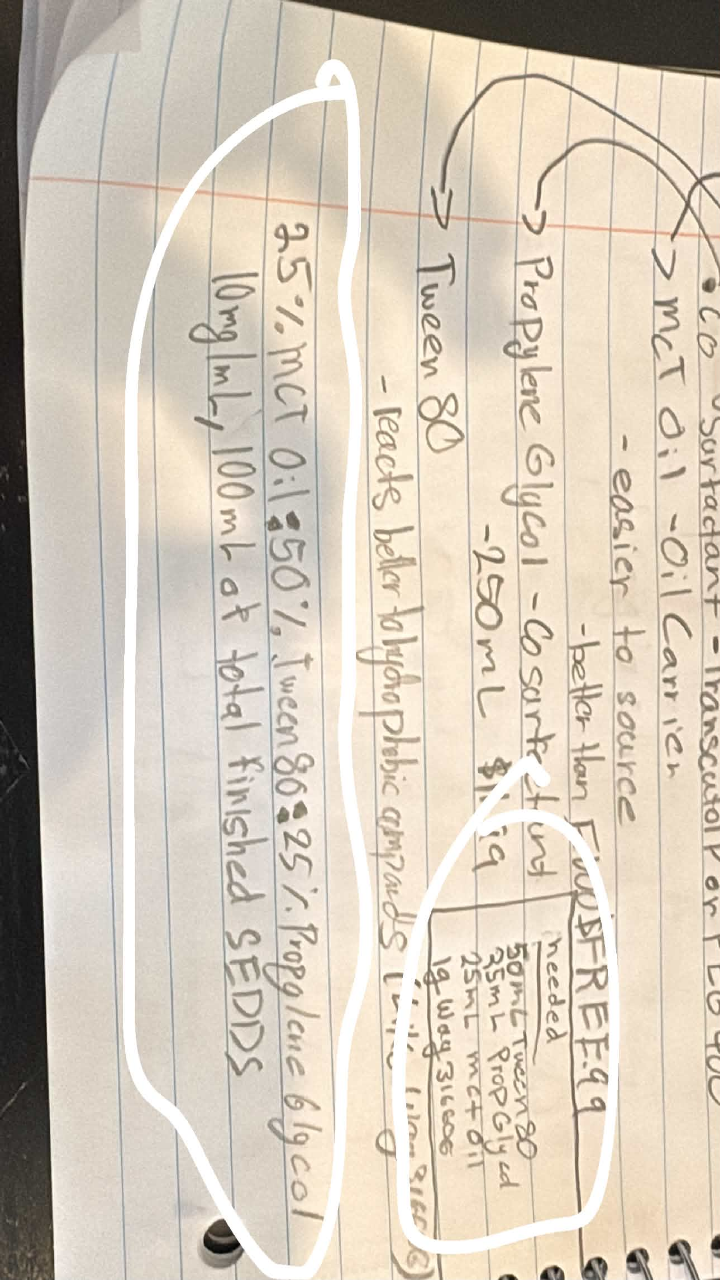 Surfactant - Transcutol P or PEG 400
> MCT Oil - Oil Carrier
- easier to source
- better than
$FREE.99
-> Propylene Glycol - Cosurfactant
- 250mL
-> Tween 80
- reacts better to hydrophobic compounds (Like
needed
50mL Tween 80
25mL Prop Glycol
25mL mct oil
1g Way 316606
25% MCT Oil : 50% Tween 80 : 25% Propylene Glycol
10mg/mL, 100mL of total finished SEDDS